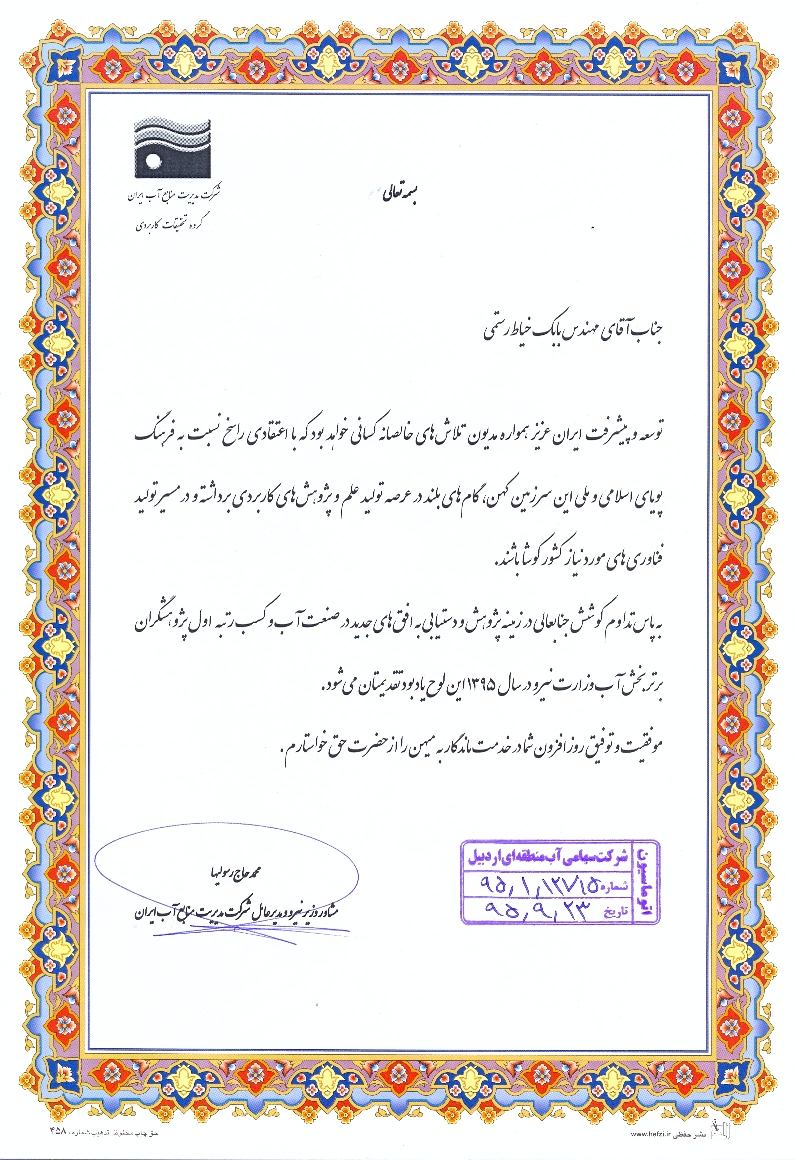 بسمه تعالی
شرکت مدیریت منابع آب ایران
گروه تحقیقات کاربردی
جناب آقای مهندس بابک خیاط رستمی
توسعه و پیشرفت ایران عزیز همواره مدیون تلاش های خالصانه کسانی خواهد بود که با اعتقادی راسخ نسبت به فرهنگ
پویای اسلامی و ملی این سرزمین کهن، گام های بلند در عرصه تولید علم و پژوهش های کاربردی برداشته و در مسیر تولید
فناوری های مورد نیاز کشور کوشا باشند.
به پاس تداوم کوشش جنابعالی در زمینه پژوهش و دستیابی به افق های جدید در صنعت آب و کسب رتبه اول پژوهشگران
برتر بخش آب وزارت نیرو در سال ۱۳۹۵ این لوح یادبود تقدیمتان می شود.
موفقیت و توفیق روز افزون شما در خدمت ماندگار به میهن را از حضرت حق خواستارم.
محمد حاج رسولیها
مشاور وزیر نیرو و مدیر عامل شرکت مدیریت منابع آب ایران
اتوماسیون
شرکت سهامی آب منطقه ای اردبیل
شماره ۹۵,۱,۱۲۷۱۵
تاریخ ۹۵,۹,۲۳
حق چاپ محفوظ تذهیب شماره: ۴۵۸
نشر حفظی www.hefzi.ir